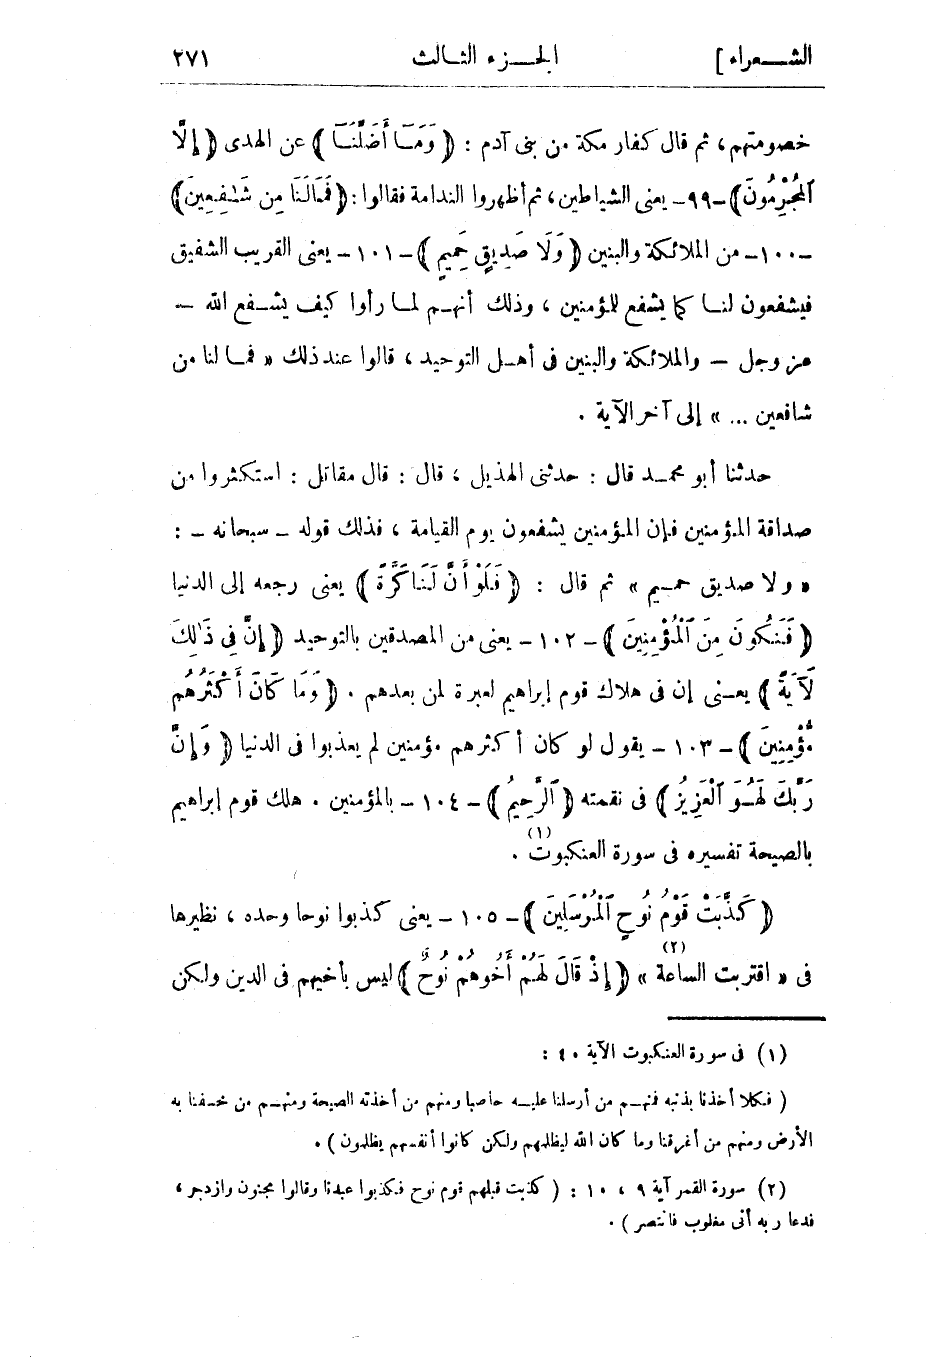 الشعراء] الجزء الثالث ٢٧١
خصومتهم، ثم قال كفار مكة من بنى آدم : ﴿ وَمَآ أَضَلَّنَآ ﴾ عن الهدى ﴿ إِلَّا
ٱلْمُجْرِمُونَ﴾ـ٩٩ـ يعنى الشياطين، ثم أظهروا الندامة فقالوا:﴿ فَمَالَنَا مِن شَـٰفِعِينَ﴾
ـ١٠٠ـ من الملائكة والنبين ﴿ وَلَا صَدِيقٍ حَمِيمٍ ﴾ـ١٠١ـ يعنى القريب الشفيق
فيشفعون لنا كما يشفع للمؤمنين ، وذلك أنهم لما رأوا كيف يشفع الله —
عز وجل — والملائكة والنبين فى أهل التوحيد ، قالوا عند ذلك « فما لنا من
شافعين ... » إلى آخر الآية .
حدثنا أبو محمد قال : حدثنى الهذيل ، قال : قال مقاتل : استكثروا من
صداقة المؤمنين فإن المؤمنين يشفعون يوم القيامة ، فذلك قوله ـ سبحانه ـ :
« ولا صديق حميم » ثم قال : ﴿ فَلَوْ أَنَّ لَنَا كَرَّةً ﴾ يعنى رجعه إلى الدنيا
﴿ فَنَكُونَ مِنَ ٱلْمُؤْمِنِينَ ﴾ـ ١٠٢ ـ يعنى من المصدقين بالتوحيد ﴿ إِنَّ فِى ذَٰلِكَ
لَآيَةً ﴾ يعنى إن فى هلاك قوم إبراهيم لعبرة لمن بعدهم . ﴿ وَمَا كَانَ أَكْثَرُهُم
مُّؤْمِنِينَ ﴾ـ ١٠٣ ـ يقول لو كان أكثرهم مؤمنين لم يعذبوا فى الدنيا ﴿ وَإِنَّ
رَبَّكَ لَهُوَ ٱلْعَزِيزُ ﴾ فى نقمته ﴿ ٱلرَّحِيمُ ﴾ـ ١٠٤ ـ بالمؤمنين . هلك قوم إبراهيم
بالصيحة تفسيره فى سورة العنكبوت (١) .
﴿ كَذَّبَتْ قَوْمُ نُوحٍ ٱلْمُرْسَلِينَ ﴾ـ ١٠٥ ـ يعنى كذبوا نوحا وحده ، نظيرها
فى « اقتربت الساعة » (٢) ﴿ إِذْ قَالَ لَهُمْ أَخُوهُمْ نُوحٌ ﴾ ليس بأخيهم فى الدين ولكن
(١) فى سورة العنكبوت الآية ٤٠ :
( فكلا أخذنا بذنبه فمنهم من أرسلنا عليه حاصبا ومنهم من أخذته الصيحة ومنهم من خسفنا به
الأرض ومنهم من أغرقنا وما كان الله ليظلمهم ولكن كانوا أنفسهم يظلمون ) .
(٢) سورة القمر آية ٩ ، ١٠ : ( كذبت قبلهم قوم نوح فكذبوا عبدنا وقالوا مجنون وازدجر ،
فدعا ربه أنى مغلوب فانتصر ) .